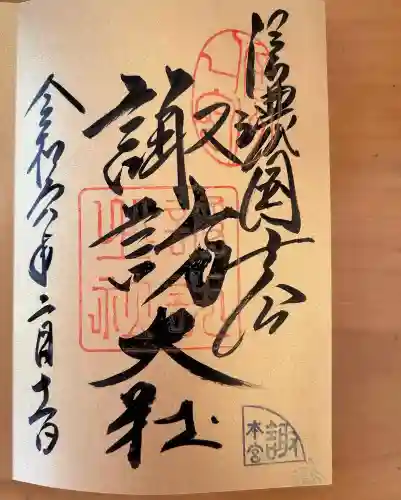 信濃国一宮
諏訪大社
令和六年二月十一日
諏
本宮